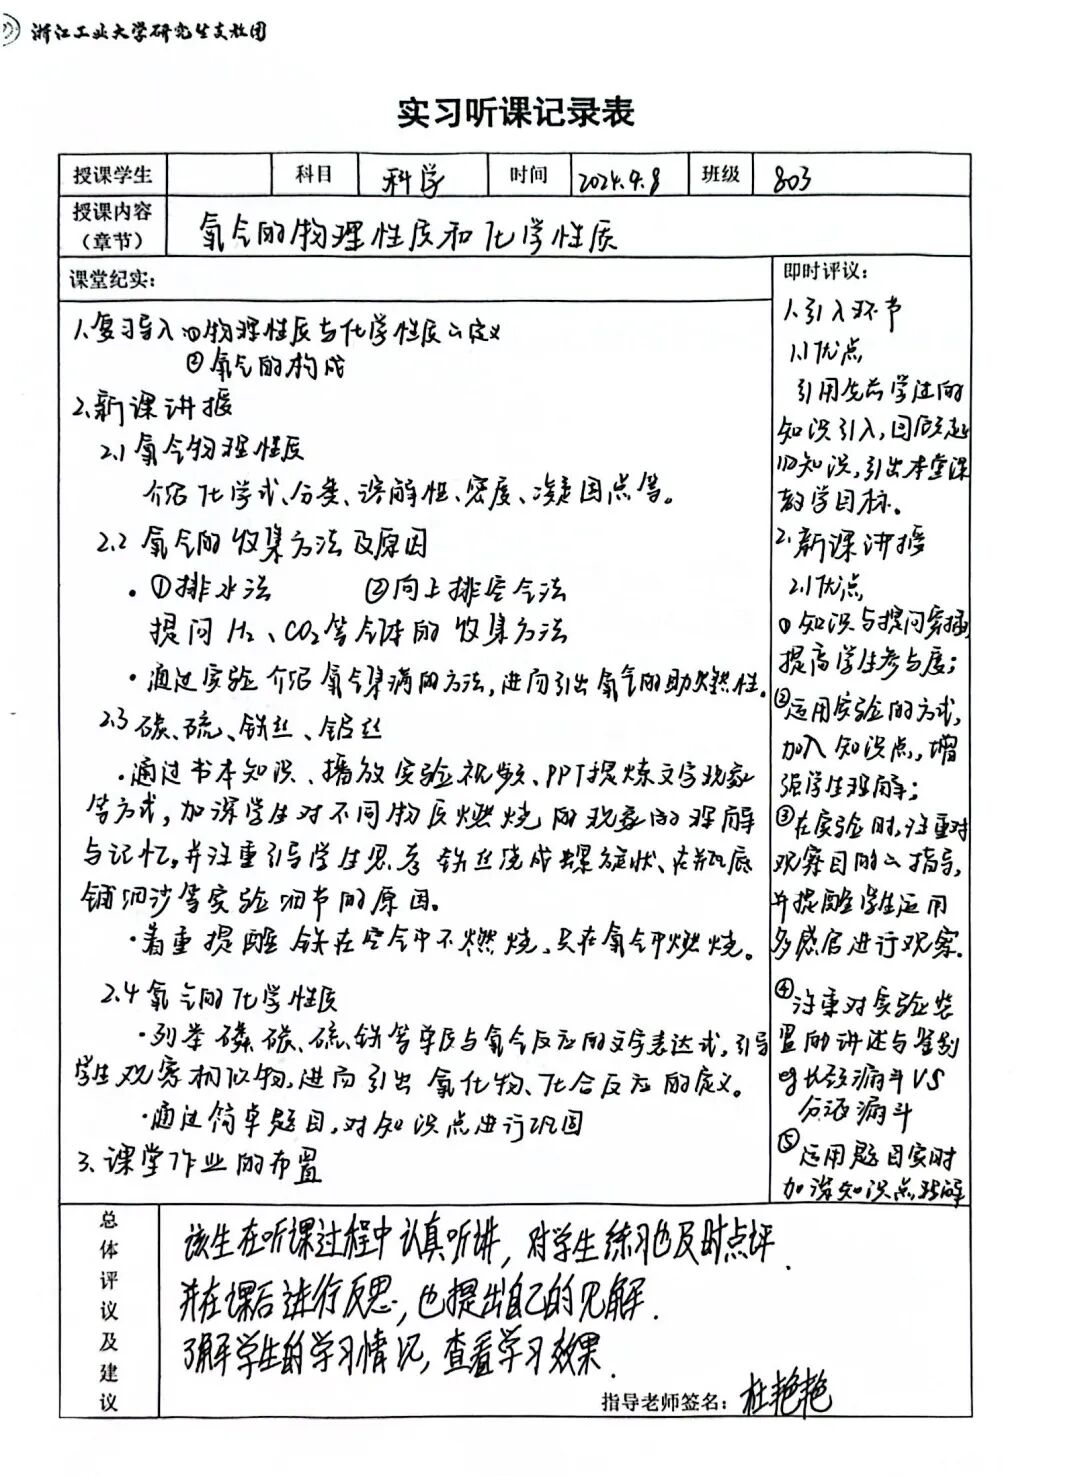 浙江工业大学研究生支教团
实习听课记录表
授课学生 科目 科学 时间 2024.9.8 班级 803
授课内容
（章节） 氧气的物理性质和化学性质
课堂纪实:
1.复习导入 ①物理性质与化学性质の定义
②氧气的构成
2.新课讲授
2.1 氧气物理性质
介绍化学式、分类、溶解性、密度、凝固点等。
2.2 氧气的收集方法及原因
·①排水法 ②向上排空气法
提问H₂、CO₂等气体的收集方法
·通过实验介绍氧气集满的方法,进而引出氧气的助燃性.
2.3 碳、硫、铁丝、铝丝
·通过书本知识、播放实验视频、PPT提炼文字现象
等方式,加深学生对不同物质燃烧的现象的理解
与记忆,并注重引导学生思考铁丝绕成螺旋状、在瓶底
铺细沙等实验细节的原因。
·着重提醒铁在空气中不燃烧,只在氧气中燃烧。
2.4 氧气的化学性质
·列举磷、碳、硫、铁等单质与氧气反应的文字表达式,引导
学生观察相似物,进而引出氧化物、化合反应的定义。
·通过简单题目,对知识点进行巩固
3.课堂作业的布置
即时评议:
1.引入环节
1.1优点
引用先前学过的
知识引入,回顾
旧知识,引出本堂课
教学目标。
2.新课讲授
2.1优点
①知识与提问穿插
提高学生参与度;
②运用实验的方式,
加入知识点,增
强学生理解;
③在实验时,注重对
观察目的の指导,
并提醒学生运用
多感官进行观察.
④注重对实验装
置的讲述与鉴别
eg长颈漏斗VS
分液漏斗
⑤运用题目实时
加深知识点理解
总体评议及建议
该生在听课过程中认真听讲,对学生练习也及时点评.
并在课后进行反思,也提出自己的见解.
了解学生的学习情况,查看学习效果.
指导老师签名: 杜艳艳